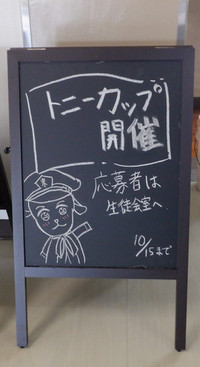 トニーカップ
開催
応募者は
生徒会室へ
10/15まで